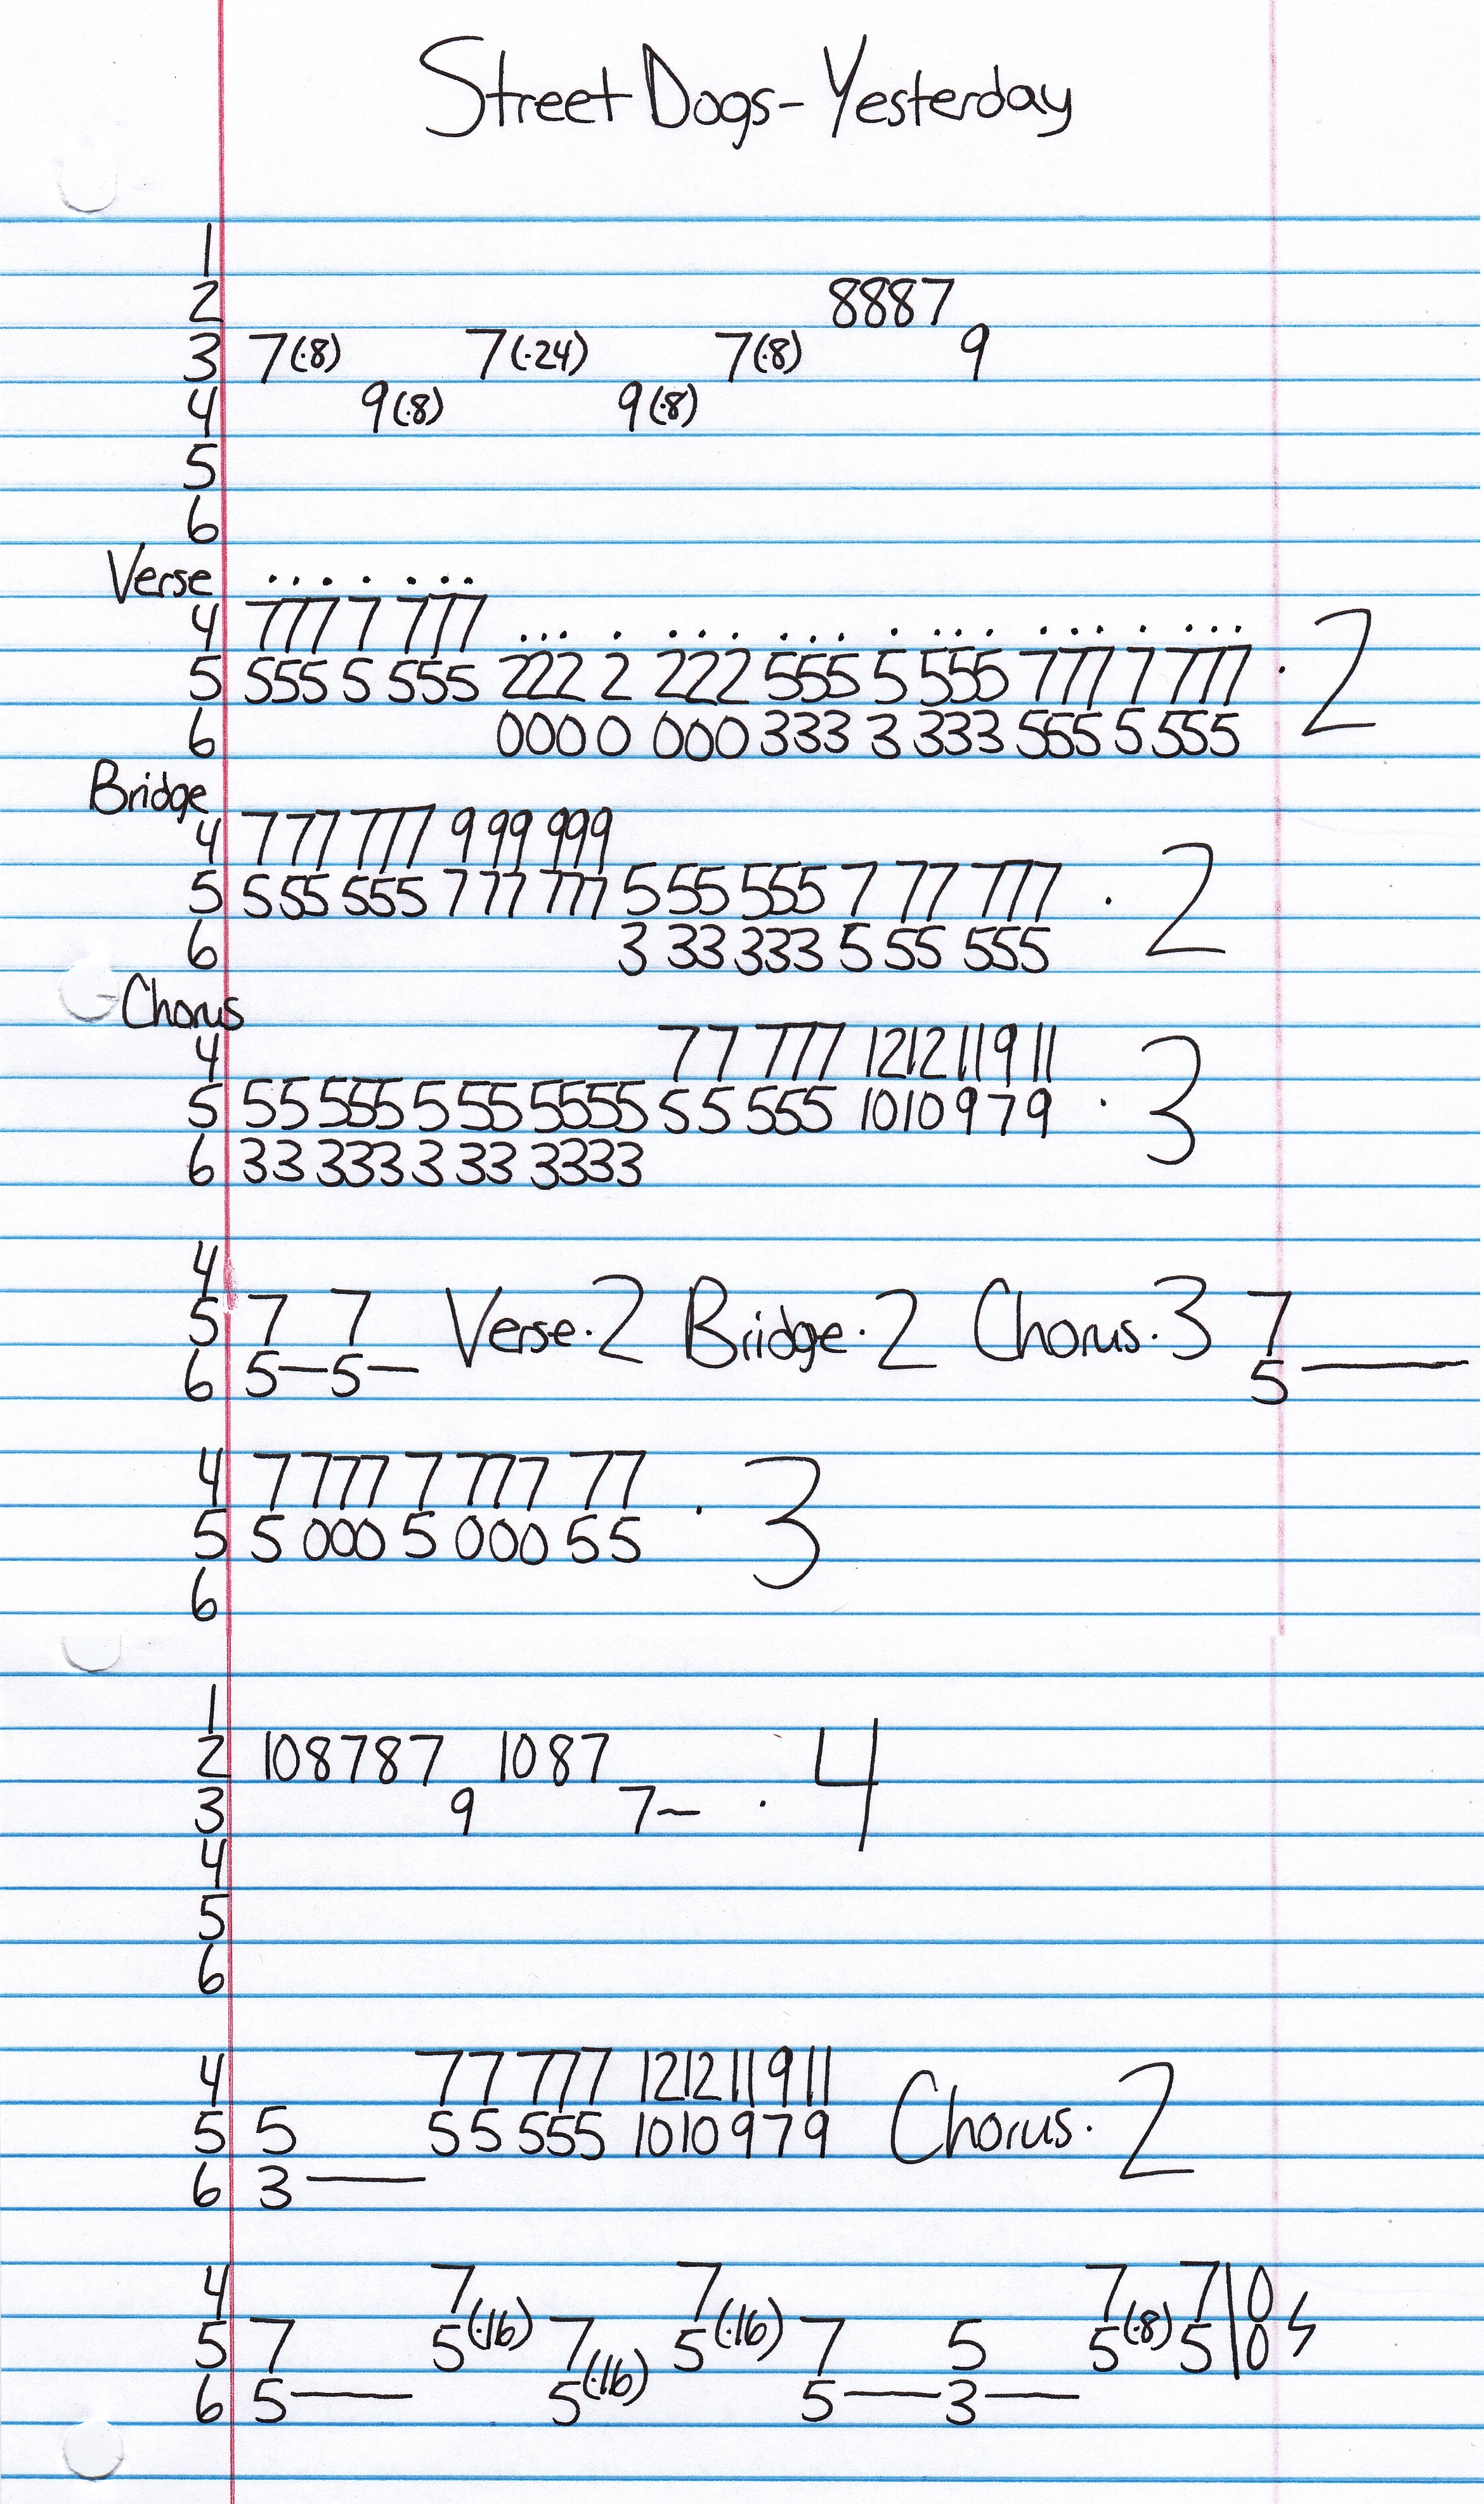 Street Dogs - Yesterday
1
2 8887
3 7(·8) 7(·24) 7(·8) 9
4 9(·8) 9(·8)
5
6
Verse . . . . . . .
4 777 7 777 ... . ... ... . ... ... . ...
5 555 5 555 222 2 222 555 5 555 777 7 777 · 2
6 000 0 000 333 3 333 555 5 555
Bridge
4 7 77 777 9 99 999
5 5 55 555 7 77 777 5 55 555 7 77 777 · 2
6 3 33 333 5 55 555
Chorus
4 77 777 12 12 11 9 11
5 55 555 5 55 5555 55 555 10 10 9 7 9 · 3
6 33 333 3 33 3333
4
5 7 7 Verse · 2 Bridge · 2 Chorus · 3 7
6 5—5— 5——
4 7 777 7 777 77
5 5 000 5 000 55 · 3
6
1
2 10 8 7 8 7 10 8 7 · 4
3 9 7~
4
5
6
4 77 777 12 12 11 9 11
5 5 55 555 10 10 9 7 9 Chorus · 2
6 3——
4 7 7 7 7|0
5 7 5(·16) 7 5(·16) 7 5 5(·8) 5|0
6 5—— 5(·16) 5——3——